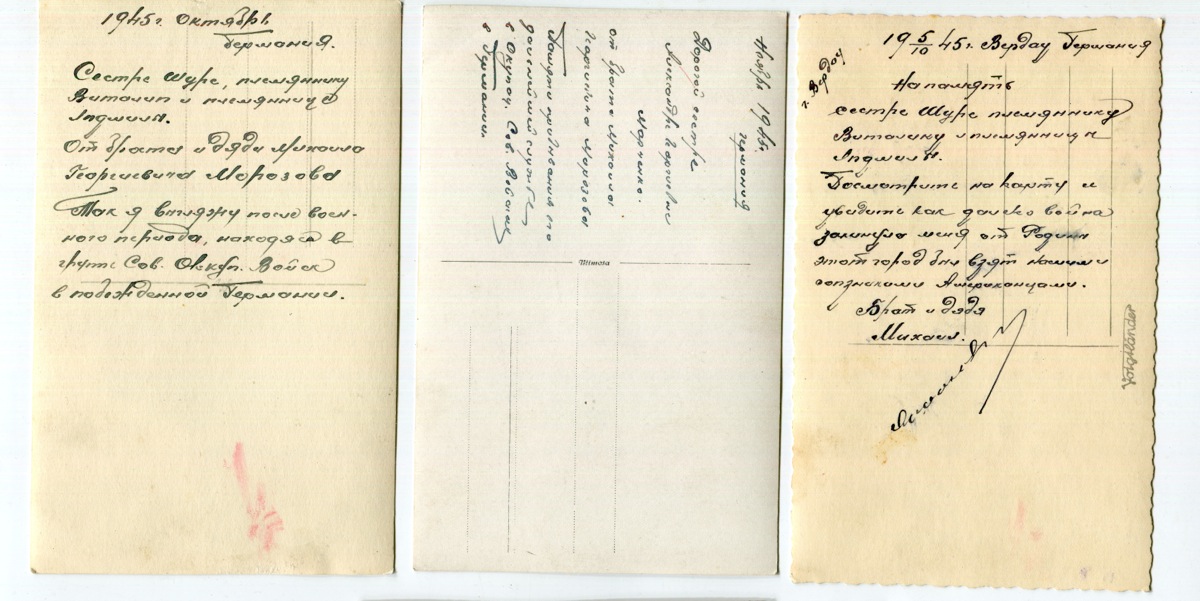 1945 г. Октябрь
Германия.
Сестре Шуре, племяннику
Виталию и племяннице
Людмиле.
От брата и дяди Михаила
Георгиевича Морозова
Так я выгляжу после воен-
ного периода, находясь в
группе Сов. Оккуп. Войск
в побежденной Германии.
Ноябрь 1945г.
Германия
Дорогой сестре
Георгиевне
Марченко.
от брата Михаила
Георгиевича Морозова
Памяти пребывания его
службе
в Оккуп. Сов. Войсках
в Германии.
Mimosa
19 5/10 45 г. Вердау Германия
г. Вердау
На память
сестре Шуре племяннику
Виталику и племяннице
Людмиле.
Посмотрите на карту и
увидите как далеко война
закинула меня от Родины
этот город был взят нашими
союзниками Американцами.
Брат и дядя
Михаил.
Voigtländer